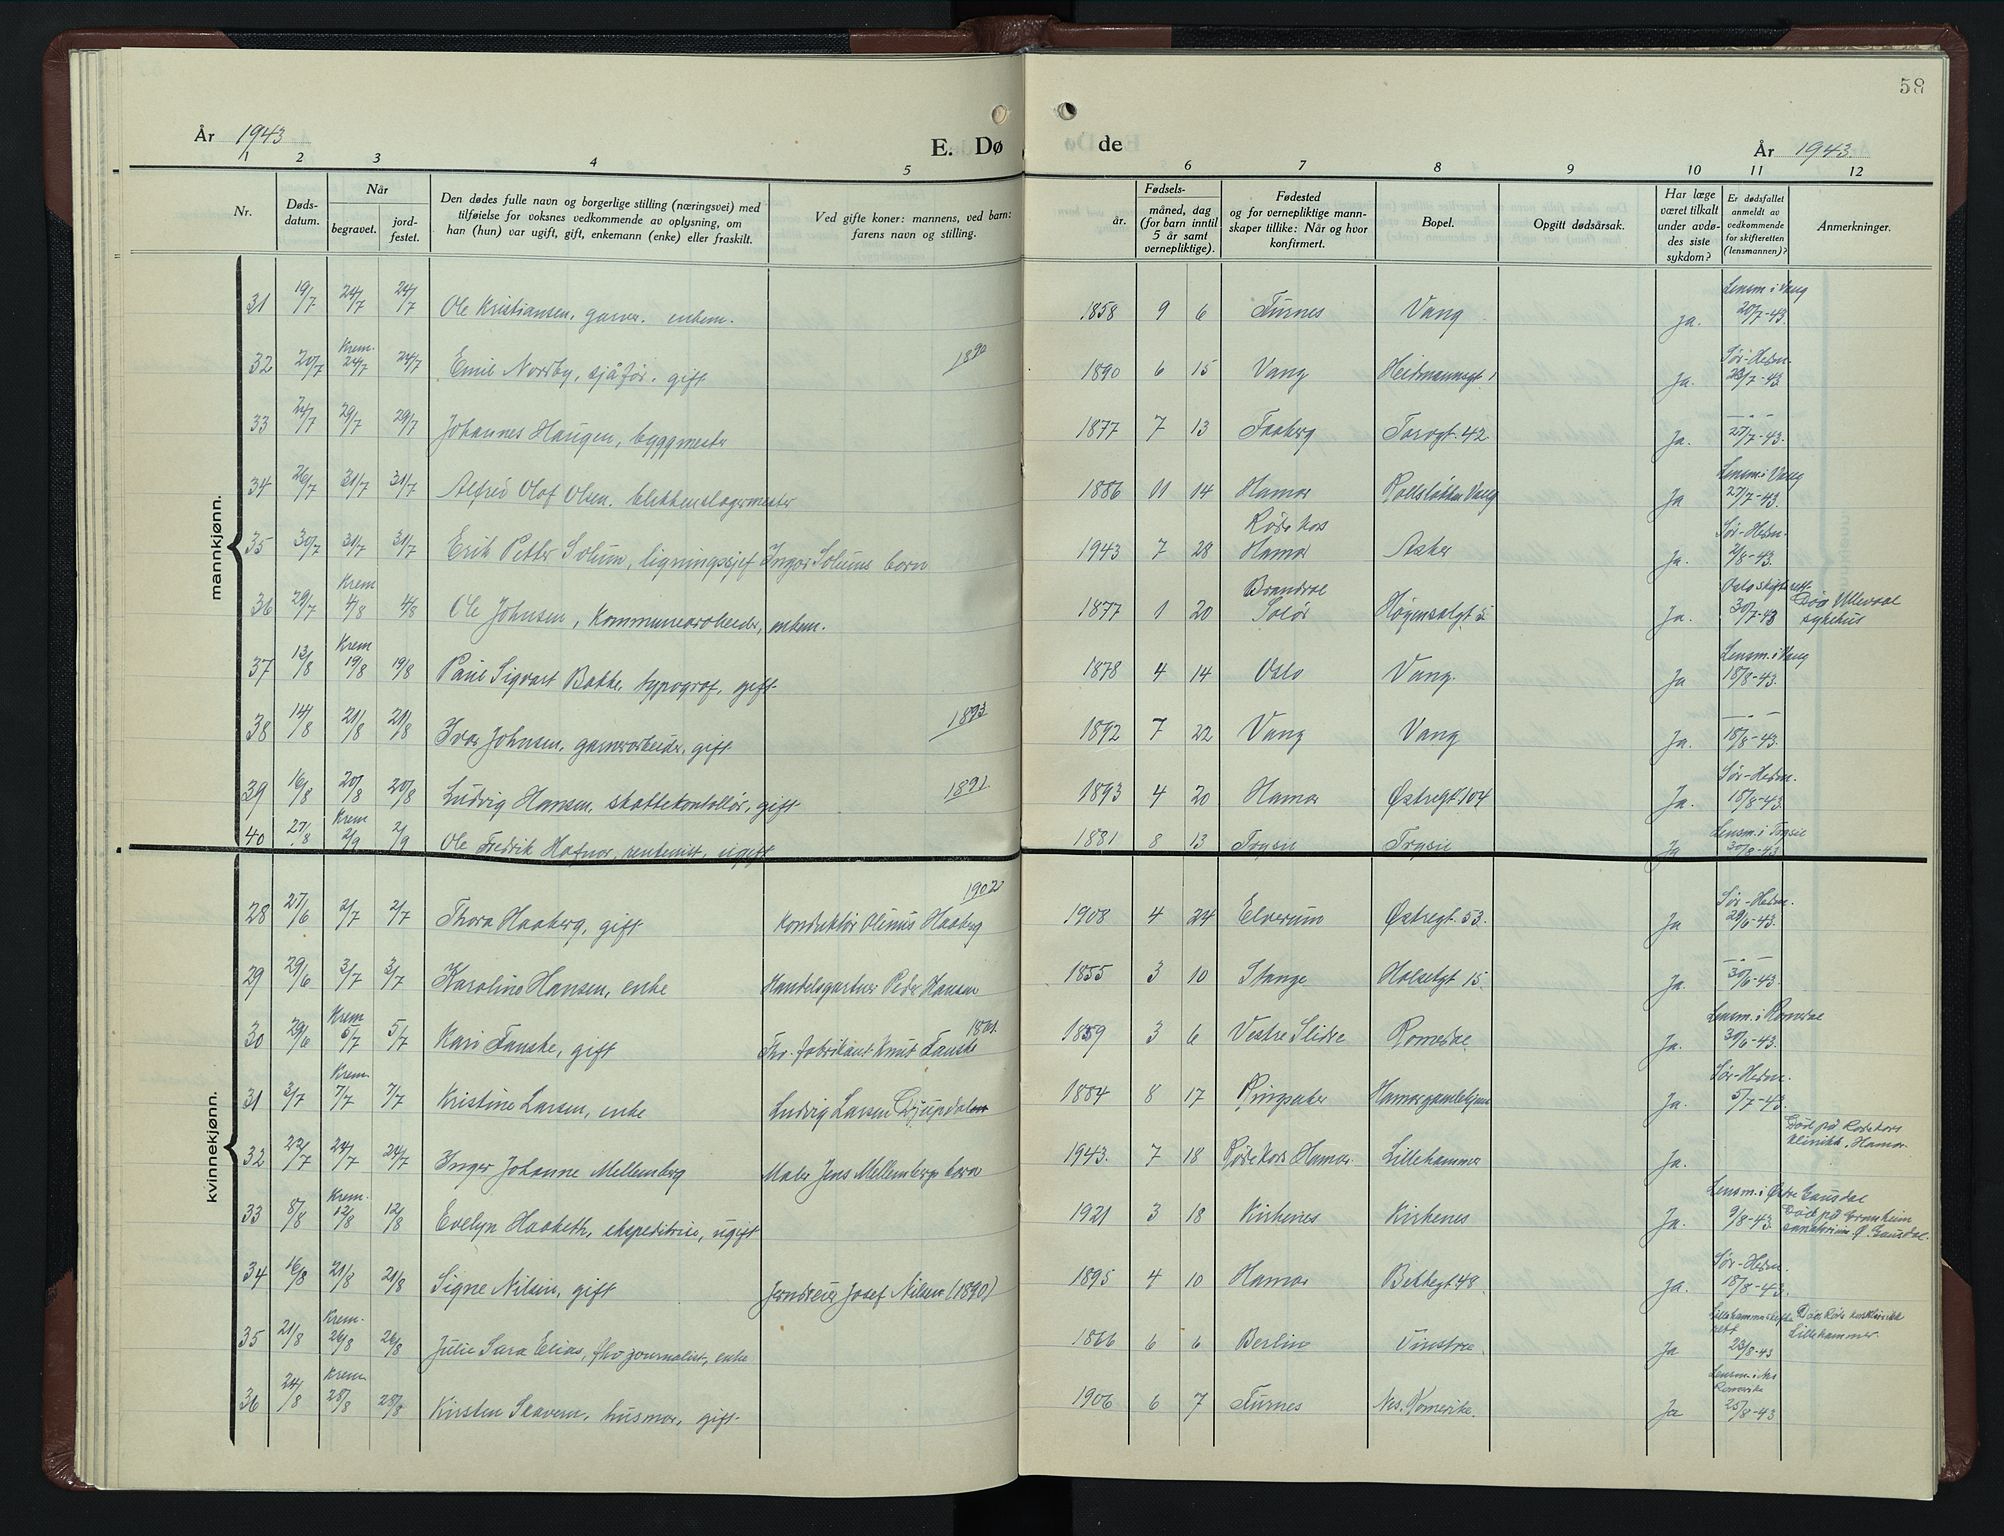 58
År 1943
E. Dø
de
År 1943.
1 2 3 4 5 6 7 8 9 10 11 12
Nr.
Døds-
datum.
Når
begravet.
jord-
festet.
Den dødes fulle navn og borgerlige stilling (næringsvei) med
tilføielse for voksnes vedkommende av oplysning, om
han (hun) var ugift, gift, enkemann (enke) eller fraskilt.
Ved gifte koner: mannens, ved barn:
farens navn og stilling.
Fødsels-
år.
måned, dag
(for barn inntil
5 år samt
vernepliktige).
Fødested
og for vernepliktige mann-
skaper tillike: Når og hvor
konfirmert.
Bopel.
Opgitt dødsårsak.
Har læge
været tilkalt
under avdø-
des siste
sykdom?
Er dødsfallet
anmeldt av
vedkommende
for skifteretten
(lensmannen)?
Anmerkninger.
mannkjønn.
31 19/7 24/7 24/7 Ole Kristiansen, garver. enkem. 1858 9 6 Furnes Vang ja. Lensm. i Vang 20/7-43.
32 20/7 Krem. 24/7 24/7 Emil Nordby, sjåfør. gift 1890 1890 6 15 Vang Heidmannsgt 1 Ja. Sør-Hedm. 23/7-43.
33 24/7 29/7 29/7 Johannes Haugen, byggmester 1877 7 13 Faaberg Torvgt. 42. Ja. —.— 27/7-43.
34 26/7 31/7 31/7 Alfred Olof Olsen. blikkenslagermester 1886 11 14 Hamar Vang Ja Lensm. i Vang 27/7-43.
35 30/7 31/7 31/7 Erik Petter Solum, ligningssjef Ingar Solums barn 1943 7 28 Røde kors Hamar Asker Ja. Sør-Hedm- 2/8-43.
36 29/7 Krem 4/8 4/8 Ole Johnsen, kommunearbeider, enkem. 1877 1 20 Brandval Solør Høgensalgt. 5 Ja. Oslo skifterett 30/7-43 Død Ullevaal sykehus
37 13/8 Krem 19/8 19/8 Paul Sigvart Bakke, typograf, gift 1878 4 14 Oslo Vang. Ja Lensm. i Vang 18/8-43.
38 14/8 21/8 21/8 Ivar Johnsen, garverarbeider, gift 1893 1892 7 22 Vang Vang Ja. —.— 18/8-43.
39 16/8 20/8 20/8 Ludvig Hansen, skattekontollør, gift 1891. 1893 4 20 Hamar Østregt. 104 Ja. Sør-Hedm. 18/8-43.
40 27/8 Krem 2/9 2/9 Ole Fredrik Hafnor, rentenist, ugift 1881 8 13 Trysil Trysil Ja Lensm. i Trysil 30/8-43
kvinnekjønn.
28 27/6 2/7 2/7 Thora Haaberg, gift Konduktør Olinus Haaberg 1902 1908 4 24 Elverum Østregt. 53. Ja Sør-Hedm. 29/6-43.
29 29/6 3/7 3/7 Karoline Hansen, enke Handelsgartner Peder Hansen 1855 3 10 Stange Holsetgt 15. Ja. —.— 30/6-43.
30 29/6 Krem 5/7 5/7 Kari Fauske, gift Fhv. fabrikant Knut Fauske 1861. 1859 3 6 Vestre Slidre Romedal Ja. Lensm. i Romedal 30/6-43.
31 3/7 Krem. 7/7 7/7 Kristine Larsen, enke Ludvig Larsen Djupdalen 1884 8 17 Ringsaker Hamar gamlehjem Ja. Sør-Hedm. 5/7-43.
32 22/7 24/7 24/7 Inger Johanne Mellemberg Maler Jens Mellembergs barn 1943. 7 18 Røde Kors Hamar. Lillehammer Ja. Død på Rødekors klinikk, Hamar.
33 8/8 Krem. 12/8 12/8 Evelyn Haabeth, ekspeditrise, ugift 1921 3 18 Kirkenes Kirkenes Ja. Lensm. i Østre Gausdal 9/8-43. Død på Granheim sanatorium Ø. Gausdal.
34 16/8 21/8 21/8 Signe Nilsen, gift Jerndreier Josef Nilsen (1890) 1895 4 10 Hamar Bekkegt. 48. ja. Sør-Hedm. 18/8-43.
35 21/8 Krem. 26/8 26/8 Julie Sara Elias, fhv journalist, enke 1866 6 6 Berlin Vinstra. Ja Lillehammer skifterett 23/8-43 Død Røde korsklinikk Lillehammer.
36 24/8 Krem. 28/8 28/8 Kirsten Skavern, husmor, gift. 1906 6 7 Furnes Nes. Romerike. Ja Lensm. i Nes Romerike 25/8-43